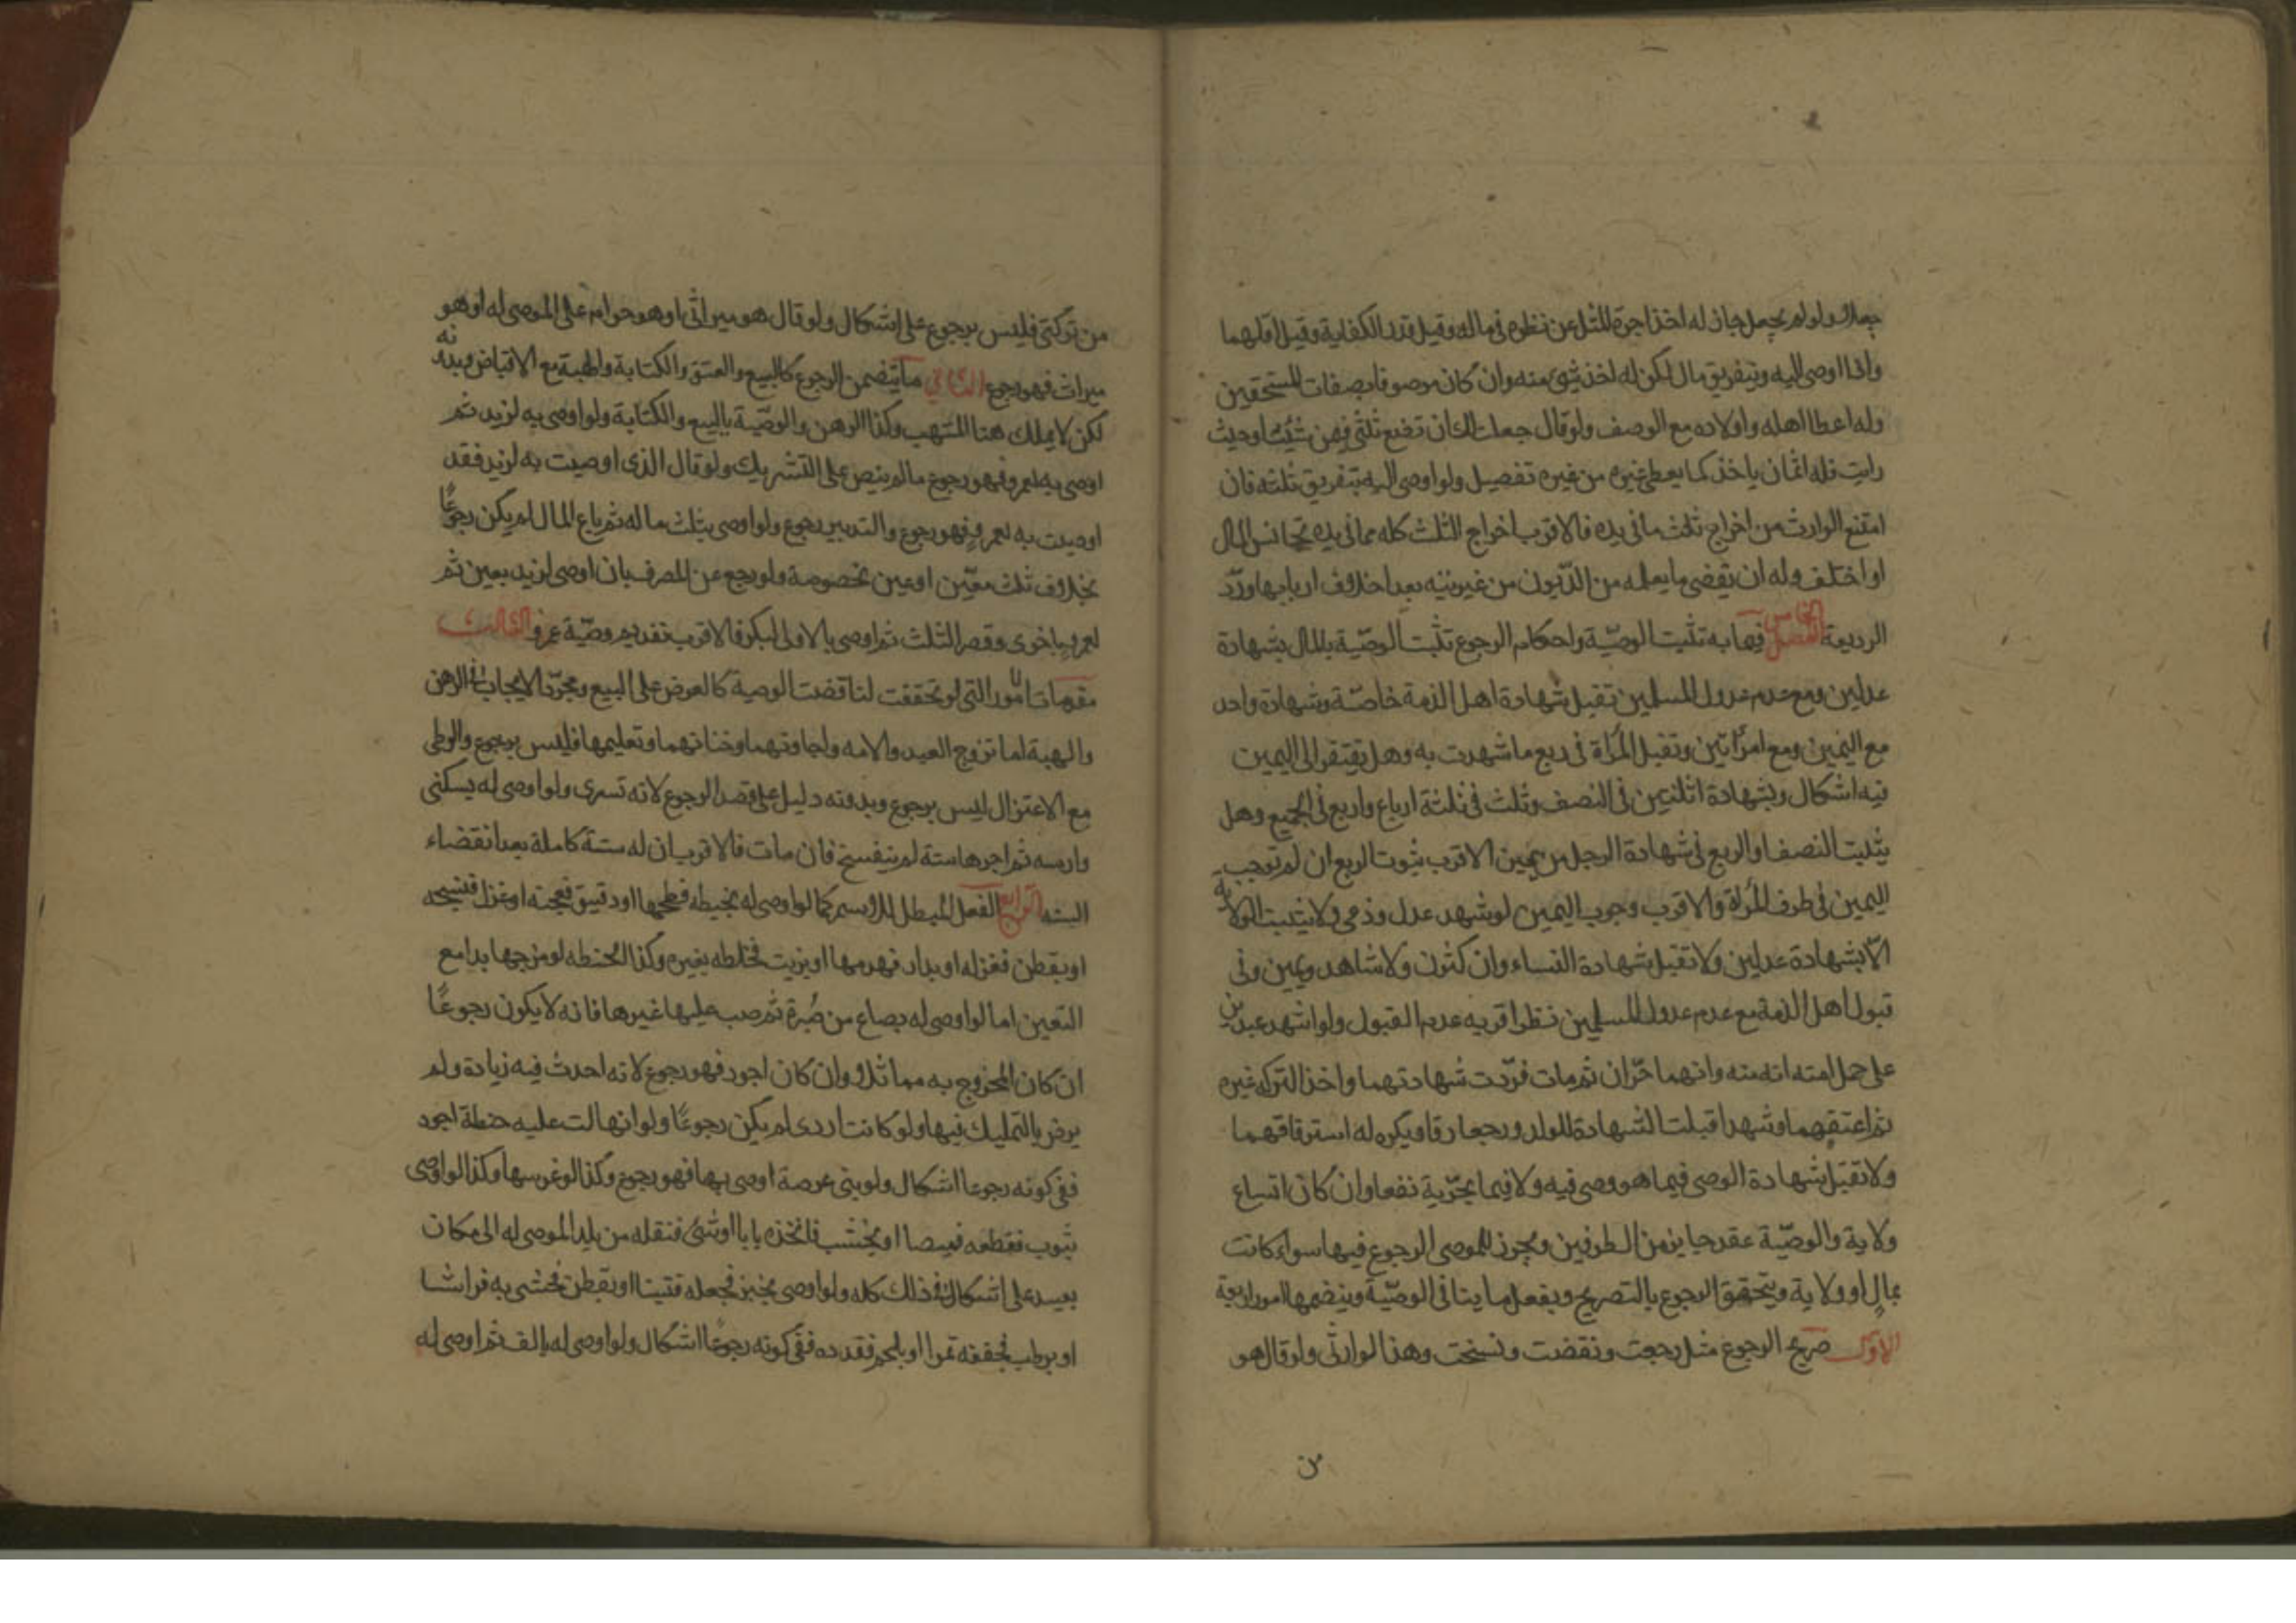 جعلا ولو لم يجعل جاز له اخذ اجرة المثل عن نظره في ماله وقيل قدر الكفاية وقيل اقلهما
واذا اوصى اليه وبتفريق مال لم يكن له اخذ شئ منه وان كان موصوفا بصفات المستحقين
وله اعطا اهله واولاده مع الوصف ولو قال جعلت لك ان تضع ثلثي فيمن شئت او حيث
رايت فله ان ياخذ كما يعطى غيره من غير تفصيل ولو اوصى اليه بتفريق ثلثه فان
امتنع الوارث من اخراج ثلث ما في يده فالاقرب اخراج الثلث كله مما في يده تجانس المال
او اختلف وله ان يقضى ما يعلمه من الديون من غير بينه بعد احلاف اربابها ورد
الوديعة الفصل الخامس فيما به تثبت الوصية واحكام الرجوع تثبت الوصية بالمال بشهادة
عدلين ومع عدم عدول المسلمين تقبل شهادة اهل الذمة خاصة وشهادة واحد
مع اليمين ومع امراتين وتقبل المراة في ربع ما شهدت به وهل يفتقر الى اليمين
فيه اشكال وبشهادة اثنتين في النصف وثلث في ثلثة ارباع واربع في الجميع وهل
يثبت النصف او الربع في شهادة الرجل من يمين الاقرب ثبوت الربع ان لم توجب
اليمين في طرف المراة والاقرب وجوب اليمين لو شهد عدل وذمي ولا يثبت الولاية
الا بشهادة عدلين ولا تقبل شهادة النساء وان كثرن ولا شاهد ويمين وفي
قبول اهل الذمة مع عدم عدول المسلمين نظر اقربه عدم القبول ولو اشهد عبدين
على حمل امته انه منه وانهما حران ثم مات فردت شهادتهما واخذ التركه غيره
ثم اعتقهما وشهدا قبلت الشهادة للولد ورجعا رقا ويكره له استرقاقهما
ولا تقبل شهادة الوصى فيما هو وصى فيه ولا فيما يجر به نفعا وان كان اتساع
ولاية والوصية عقد جايز من الطرفين ويجوز للموصى الرجوع فيها سواء كانت
بمال او ولاية ويتحقق الرجوع بالتصريح وبفعل ما ينافى الوصية وينضمها امور اربعة
الاول صريح الرجوع مثل رجعت ونقضت ونسخت وهذا لوارثي ولو قال هو
من
من تركتي فليس برجوع على اشكال ولو قال هو ميراثي او هو حرام على الموصى له او هو
ميراث فهو رجوع الثاني ما يتضمن الرجوع كالبيع والعتق والكتابة والهبة مع الاقباض وبدونه
لكن لا يملك هنا المتهب وكذا الرهن والوصية بالبيع والكتابة ولو اوصى به لزيد ثم
اوصى به لعمرو فهو رجوع ما لم ينص على التشريك ولو قال الذى اوصيت به لزيد فقد
اوصيت به لعمرو فهو رجوع والتدبير رجوع ولو اوصى بثلث ماله ثم باع المال لم يكن رجوعا
بخلاف ثلث معين او عين مخصوصة ولو رجع عن المصرف بان اوصى لزيد بعين ثم
لعمرو باخرى وقصر الثلث ثم اوصى بالاولى لبكر فالاقرب تقديم وصية عمرو الثالث
مقدمات الامور التي لو تحققت لناقضت الوصية كالعرض على البيع ومجرد الايجاب في الرهن
والهبة اما تزوج العبد والامه واجارتهما وختانهما وتعليمهما فليس برجوع والوطى
مع الاعتزال ليس برجوع وبدونه دليل على قصد الرجوع لانه تسرى ولو اوصى له بسكنى
داره سنه ثم اجرها سنة لم ينفسخ فان مات فالاقرب ان له سنة كاملة بعد انقضاء
السنه الرابع الفعل المبطل للاسم كما لو اوصى له بحنطه فطحنها او دقيق فعجنه او غزل فنسجه
او بقطن فغزله او بدار فهدمها او بزيت فخلطه بغيره وكذا الحنطه لو مزجها بدا مع
التعين اما لو اوصى له بصاع من صبرة ثم صب عليها غيرها فانه لا يكون رجوعا
ان كان الممزوج به مماثلا وان كان اجود فهو رجوع لانه احدث فيه زيادة ولم
يرض بالتمليك فيها ولو كانت اردى لم يكن رجوعا ولو انهالت عليه حنطة اجود
ففى كونه رجوعا اشكال ولو بنى عرصة اوصى بها فهو رجوع وكذا لو غرسها وكذا لو اوصى
بثوب فقطعه قميصا او بخشب فاتخذه بابا او شئ فنقله من بلد الموصى له الى مكان
بعيد على اشكال في ذلك كله ولو اوصى بخبز فجعله فتيتا او بقطن فحشى به فراشا
او برطب فجففه تمرا او بلحم فقدده ففى كونه رجوعا اشكال ولو اوصى له بالف ثم اوصى له